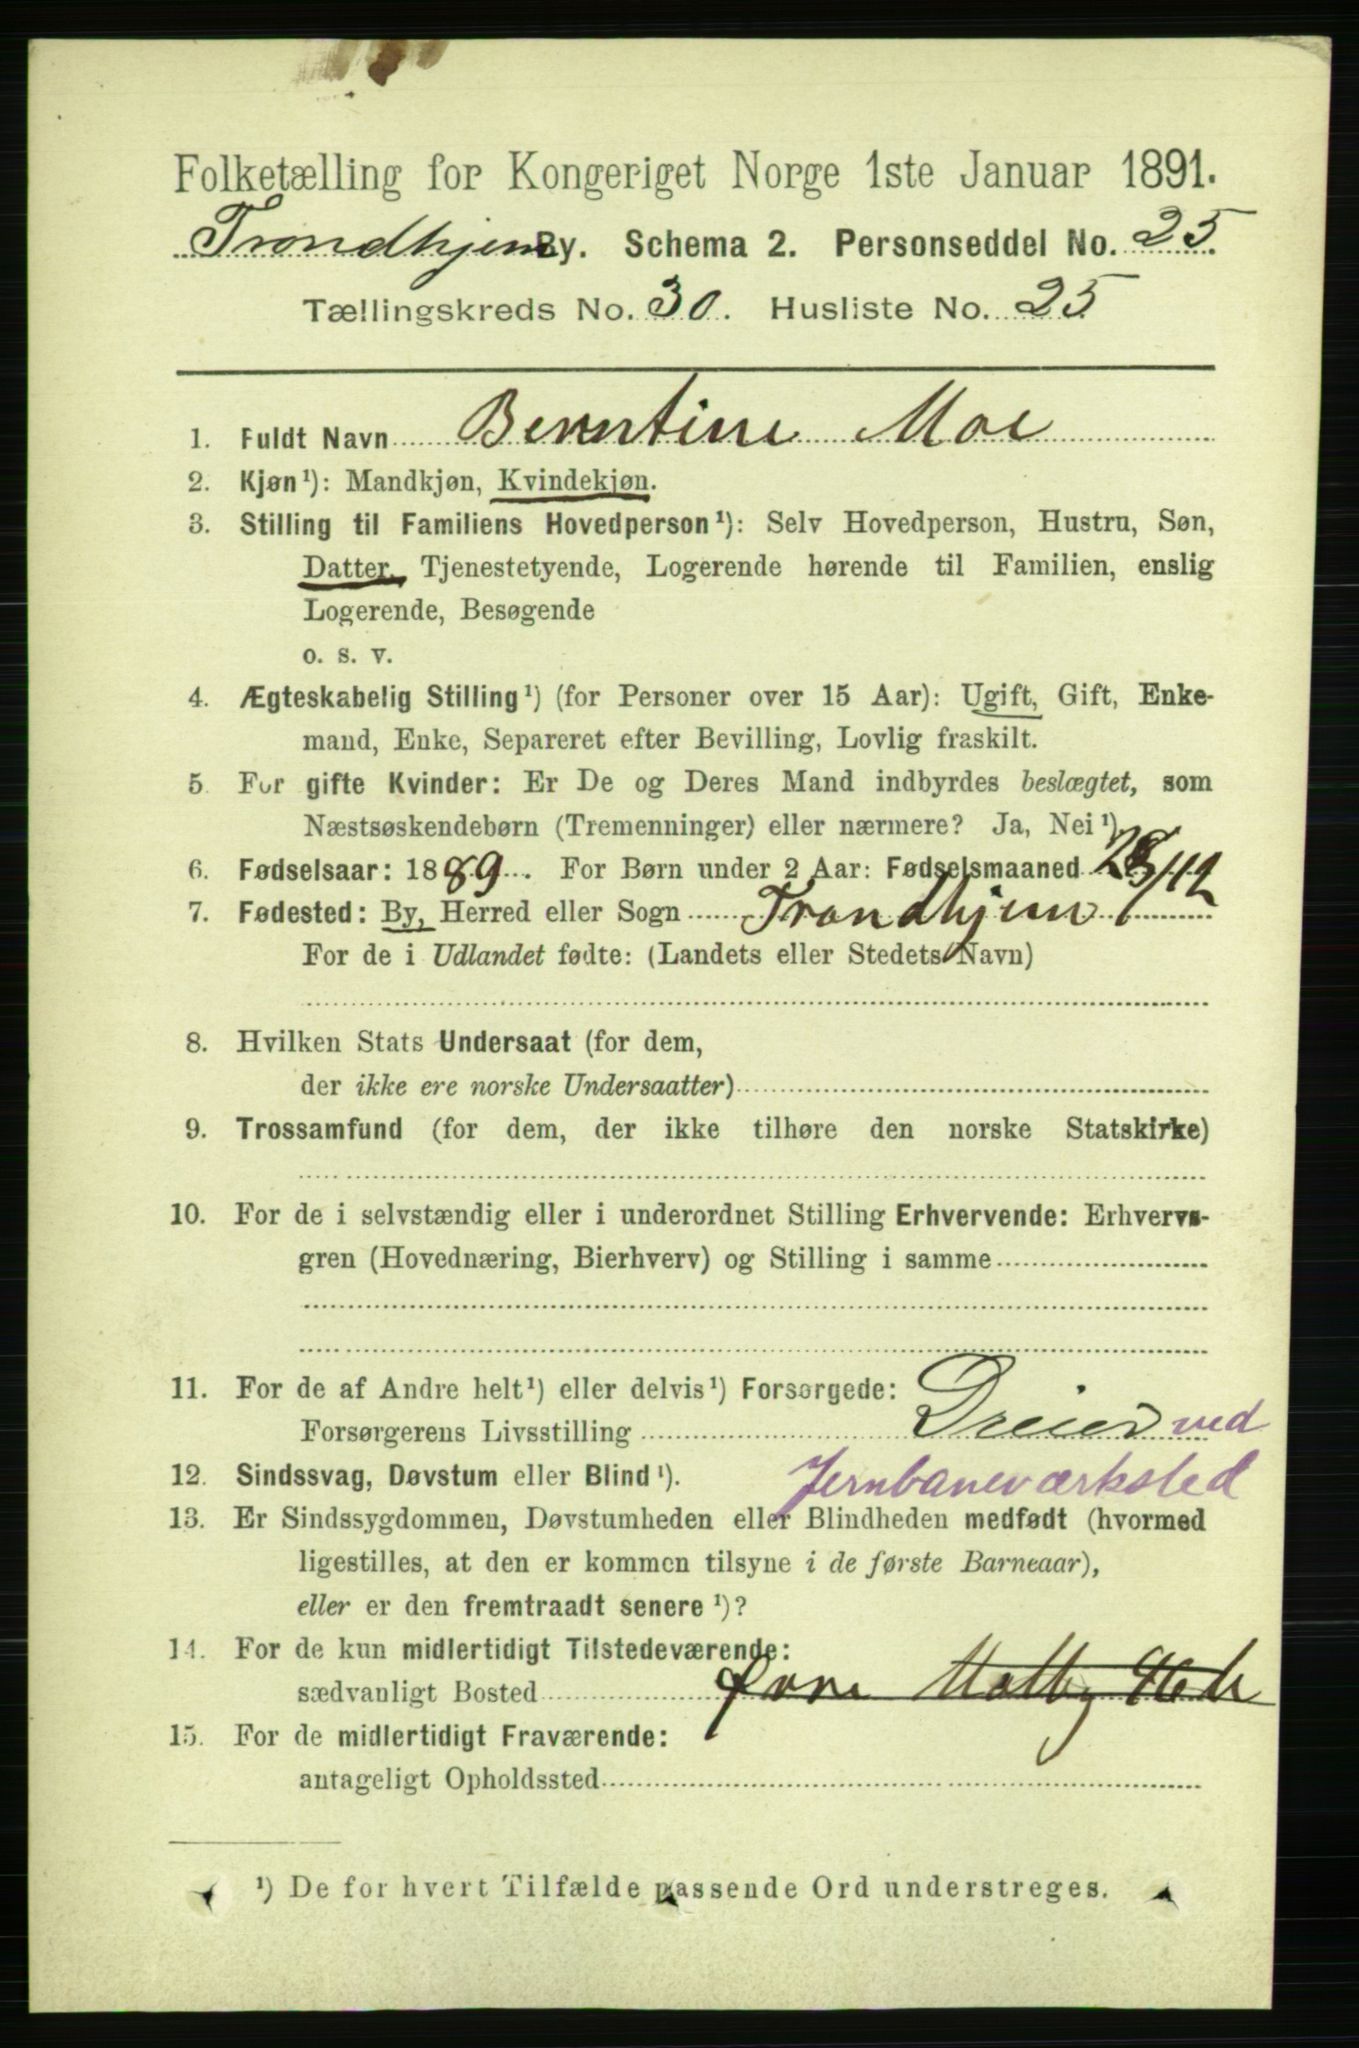 Folketælling for Kongeriget Norge 1ste Januar 1891.
Trondhjem By. Schema 2. Personseddel No. 25.
Tællingskreds No. 30. Husliste No. 25
1. Fuldt Navn Berntine Moe
2. Kjøn¹): Mandkjøn, Kvindekjøn.
3. Stilling til Familiens Hovedperson¹): Selv Hovedperson, Hustru, Søn,
Datter, Tjenestetyende, Logerende hørende til Familien, enslig
Logerende, Besøgende
o. s. v.
4. Ægteskabelig Stilling¹) (for Personer over 15 Aar): Ugift, Gift, Enke-
mand, Enke, Separeret efter Bevilling, Lovlig fraskilt.
5. For gifte Kvinder: Er De og Deres Mand indbyrdes beslægtet, som
Næstsøskendebørn (Tremenninger) eller nærmere? Ja, Nei¹)
6. Fødselsaar: 1889. For Børn under 2 Aar: Fødselsmaaned 28/12
7. Fødested: By, Herred eller Sogn Trondhjem
For de i Udlandet fødte: (Landets eller Stedets Navn)
8. Hvilken Stats Undersaat (for dem,
der ikke ere norske Undersaatter)
9. Trossamfund (for dem, der ikke tilhøre den norske Statskirke)
10. For de i selvstændig eller i underordnet Stilling Erhvervende: Erhvervs-
gren (Hovednæring, Bierhverv) og Stilling i samme
11. For de af Andre helt¹) eller delvis¹) Forsørgede:
Forsørgerens Livsstilling Dreier ved
12. Sindssvag, Døvstum eller Blind¹). Jernbaneværksted
13. Er Sindssygdommen, Døvstumheden eller Blindheden medfødt (hvormed
ligestilles, at den er kommen tilsyne i de første Barneaar),
eller er den fremtraadt senere¹)?
14. For de kun midlertidigt Tilstedeværende:
sædvanligt Bosted
15. For de midlertidigt Fraværende:
antageligt Opholdssted
¹) De for hvert Tilfælde passende Ord understreges.